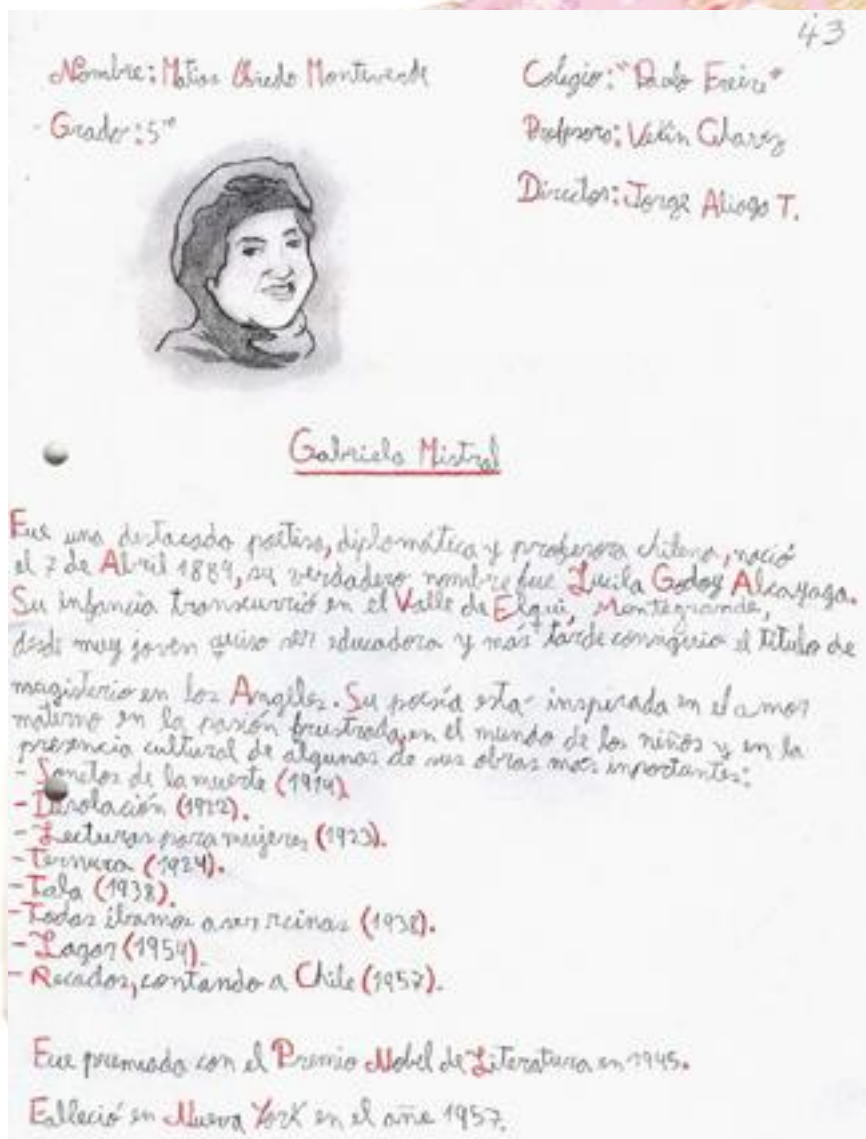 43
Nombre: Matias Oviedo Monteverde
Colegio: "Paulo Freire"
Grado: 5to
Profesora: Chavez
Director: Jorge Aliaga T.
Gabriela Mistral
Fue una destacada poetisa, diplomática y profesora chilena, nació
el 7 de Abril 1889, su verdadero nombre fue Lucila Godoy Alcayaga.
Su infancia transcurrió en el Valle de Elqui, Montegrande,
desde muy joven quiso ser educadora y más tarde consiguio el título de
magisterio en los Angeles. Su poesía esta inspirada en el amor
materno en la pasión frustrada, en el mundo de los niños y en la
presencia cultural de algunas de sus obras mas inportantes:
- Sonetos de la muerte (1914)
- Desolación (1922).
- Lecturas para mujeres (1923).
- Ternura (1924).
- Tala (1938).
- Todas ibamos a ser reinas (1938).
- Lagar (1954)
- Recados, contando a Chile (1957).
Fue premiada con el Premio Nobel de Literatura en 1945.
Falleció en Nueva York en el año 1957.